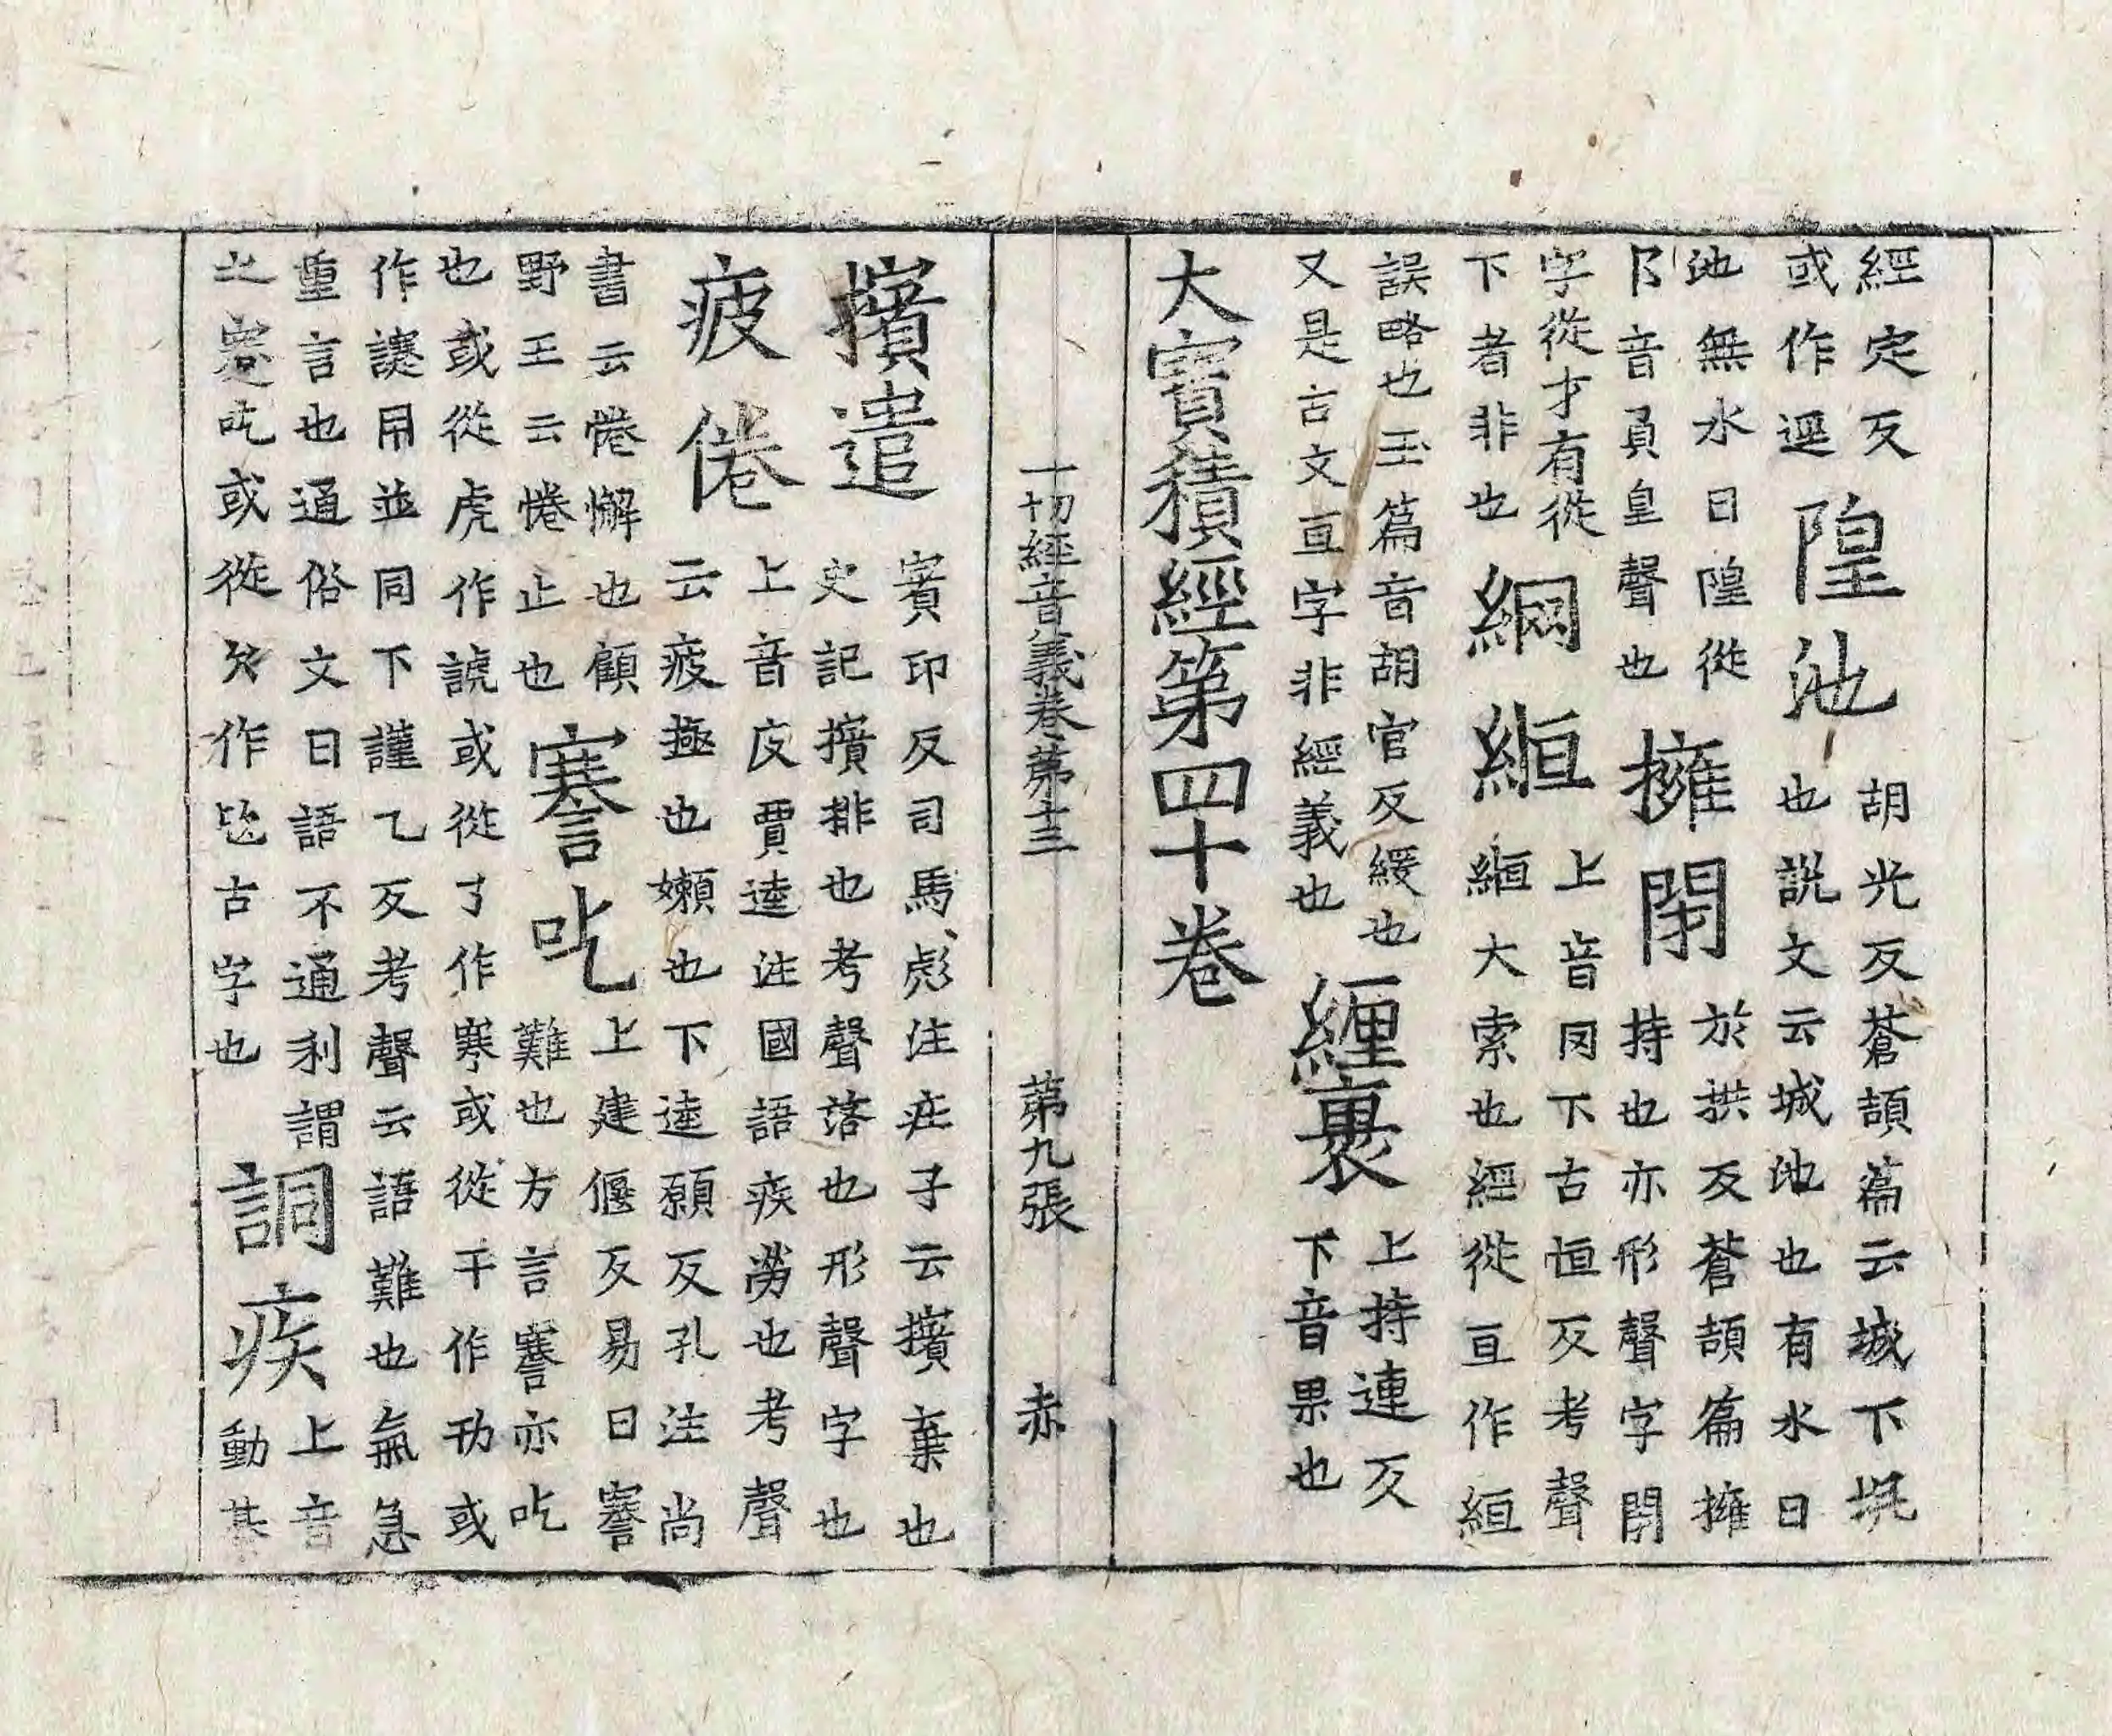 經定反
或作逕
隍池
胡光反蒼頡篇云城下坑
也説文云城池也有水曰
池無水曰隍從
阝音負皇聲也
擁閉
於拱反蒼頡篇擁
持也亦形聲字閉
字從才有從
下者非也
綱緪
上音冈下古恒反考聲
緪大索也經從亘作絙
誤略也玉篇音胡官反緩也
又是古文亘字非經義也
纏裹
上持連反
下音果也
大寶積經第四十卷
一切經音義卷第十三 第九張 赤
擯遣
賓印反司馬彪注莊子云擯棄也
史記擯排也考聲落也形聲字也
疲倦
上音皮賈逵注國語疾勞也考聲
云疲極也嬾也下逵願反孔注尚
書云惓懈也顧
野王云惓止也
謇吃
上建偃反易曰謇
難也方言謇亦吃
也或從虎作諕或從了作寒或從干作或
作同並同下謹乙反考聲云語難也氣急
重言也通俗文曰語不通利謂
之謇吃或從欠作古字也
詷疾
上音
動甚